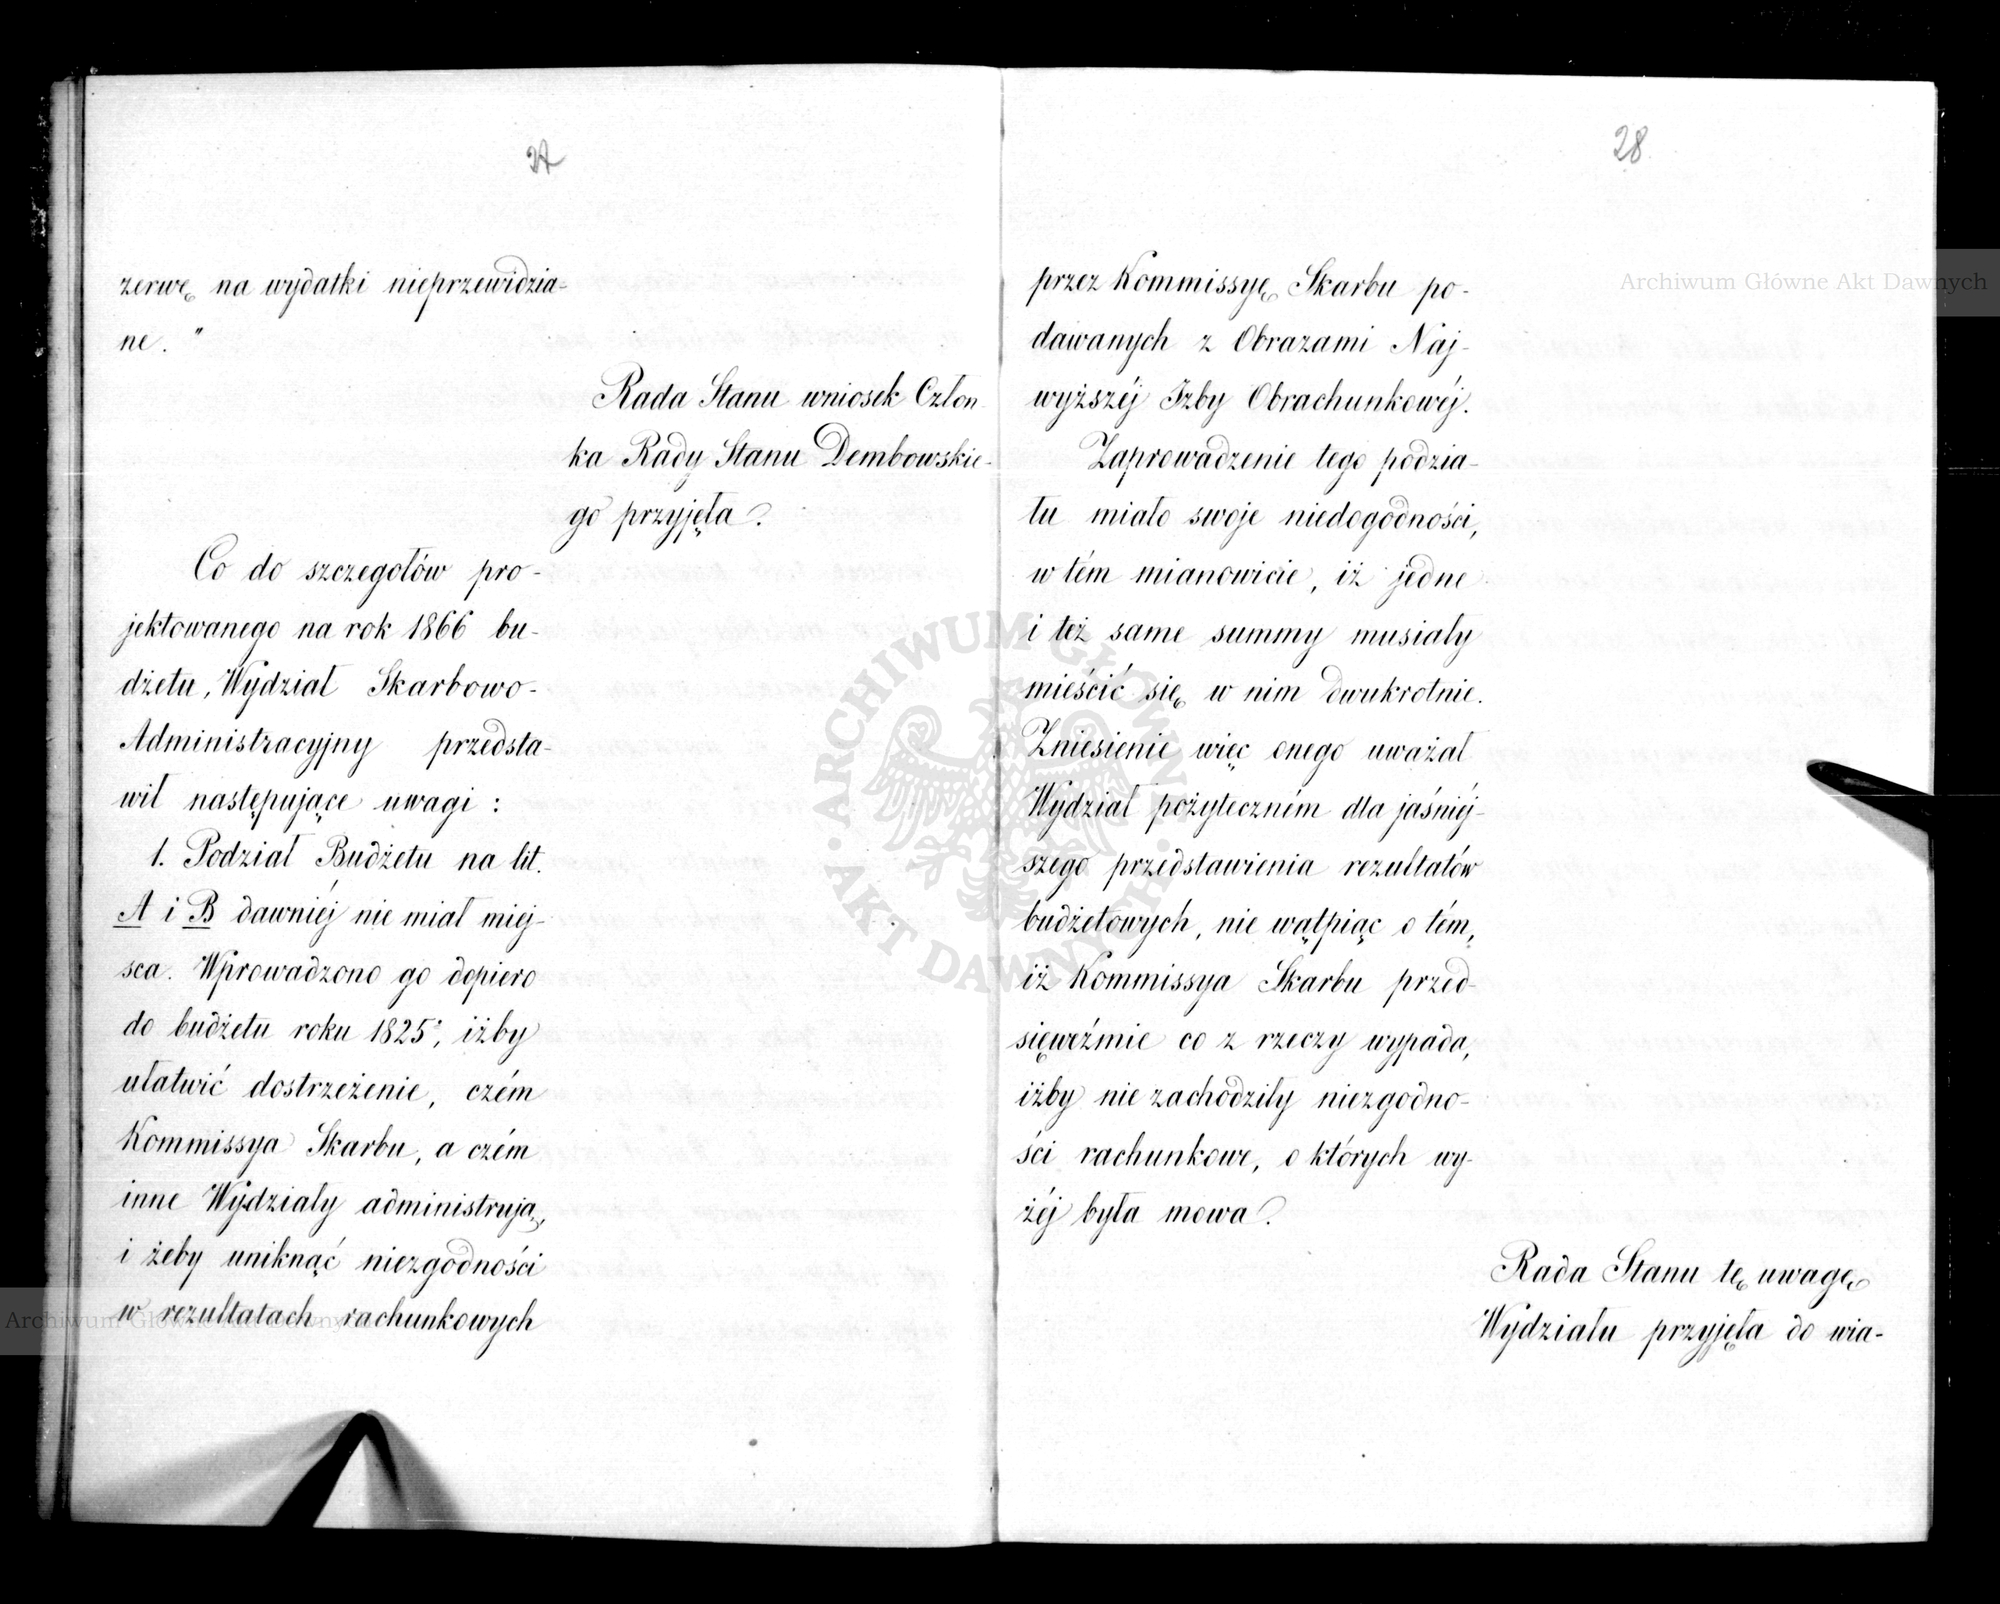 27
zerwę na wydatki nieprzewidzia-
ne."
Rada Stanu wniosek Człon-
ka Rady Stanu Dembowskie-
go przyjęła.
Co do szczegołów pro-
jektowanego na rok 1866 bu-
dżetu, Wydział Skarbowo-
Administracyjny przedsta-
wił następujące uwagi:
1. Podział Budżetu na lit.
A i B dawniéj nie miał miej-
sca. Wprowadzono go dopiero
do budżetu roku 1825, iżby
ułatwić dostrzeżenie, czém
Kommissya Skarbu, a czém
inne Wydziały administrują,
i żeby uniknąć niezgodności
w rezultatach rachunkowych
28
przez Kommissyę Skarbu po-
dawanych z Obrazami Naj-
wyższéj Izby Obrachunkowéj.
Zaprowadzenie tego podzia-
łu miało swoje niedogodności,
w tém mianowicie, iż jedne
i też same summy musiały
mieścić się w nim dwukrotnie.
Zniesienie więc onego uważał
Wydział pożyteczném dla jaśniéj-
szego przedstawienia rezultatów
budżetowych, nie wątpiąc o tém,
iż Kommissya Skarbu przed-
sięweźmie co z rzeczy wypada,
iżby nie zachodziły niezgodno-
ści rachunkowe, o których wy-
żéj była mowa.
Rada Stanu tę uwagę
Wydziału przyjęła do wia-
Archiwum Główne Akt Dawnych
Archiwum Główne Akt Dawnych
ARCHIWUM GŁÓWNE · AKT DAWNYCH ·